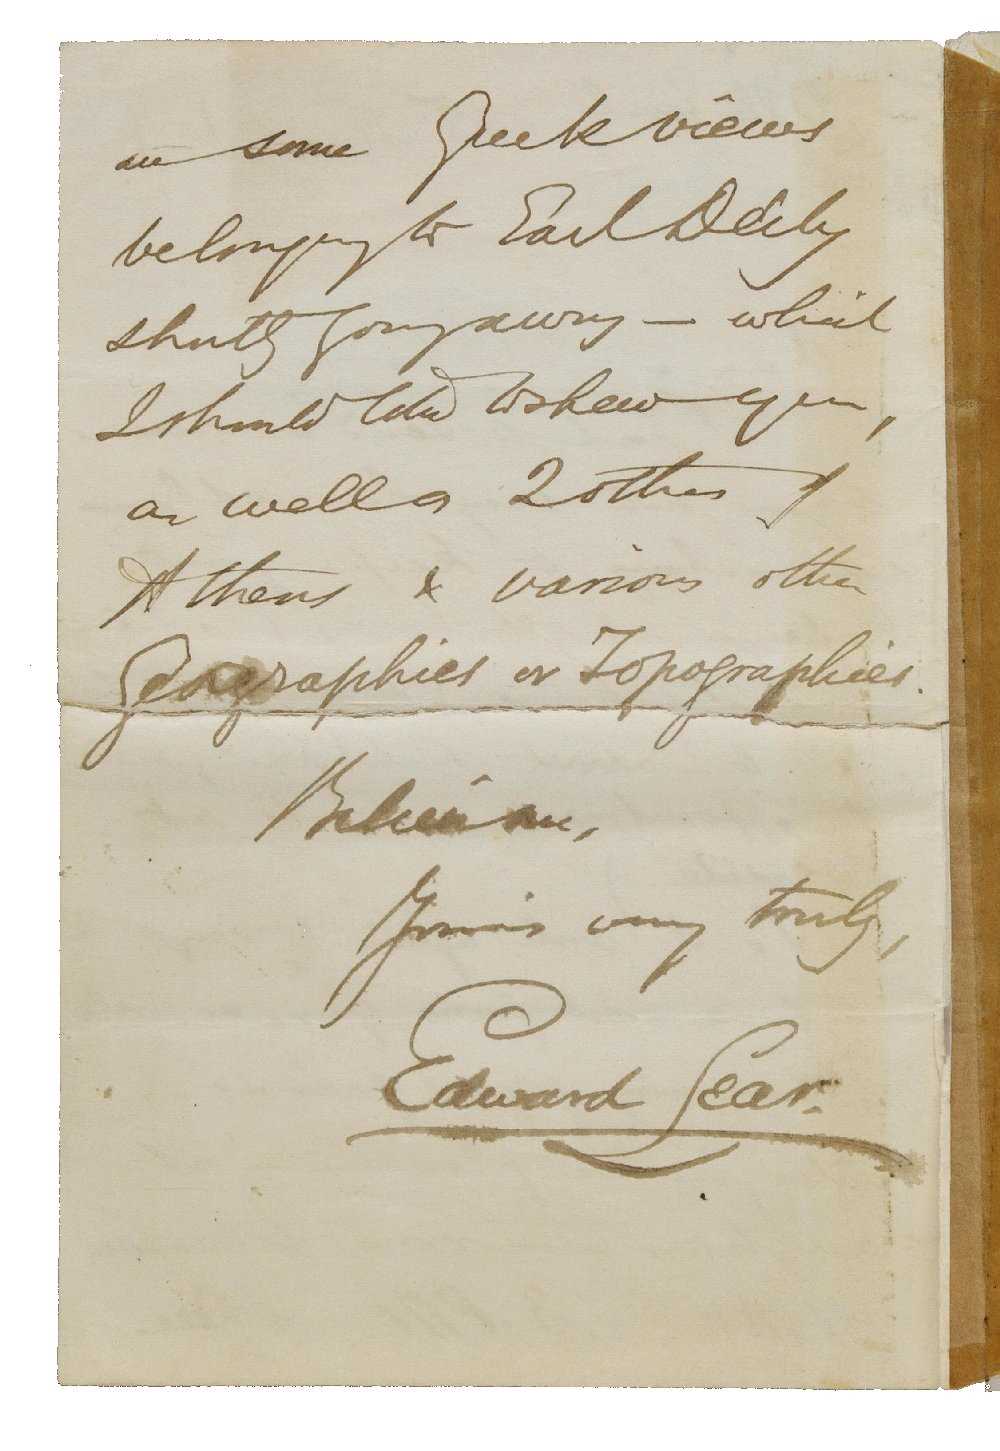 are some Greek views
belonging to Earl Derby
shortly going away — which
I should like to shew you,
as well as 2 others of
Athens & various other
Geographies or Topographies.
Believe me,
Yours very truly,
Edward Lear.